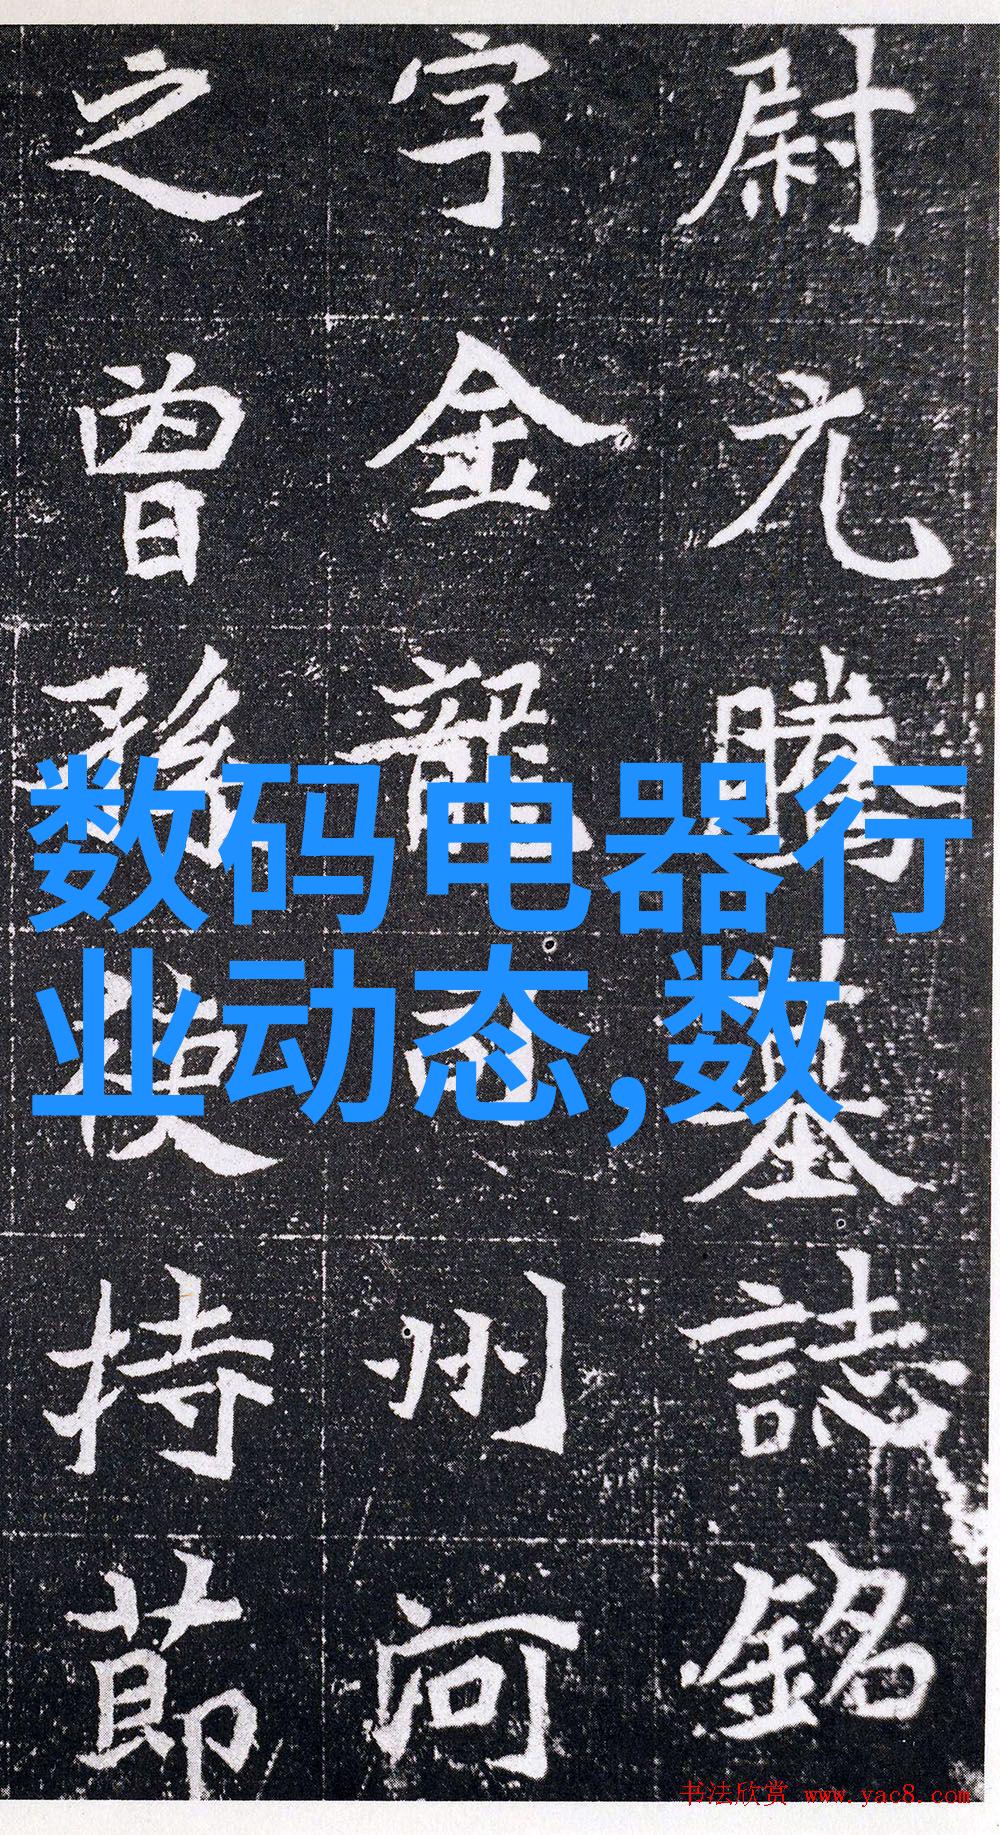 尉元騰墓誌銘
字金龍司州河
之曾孫使持莭
数码电器行
业动态,数
书法欣赏 www.yac8.com